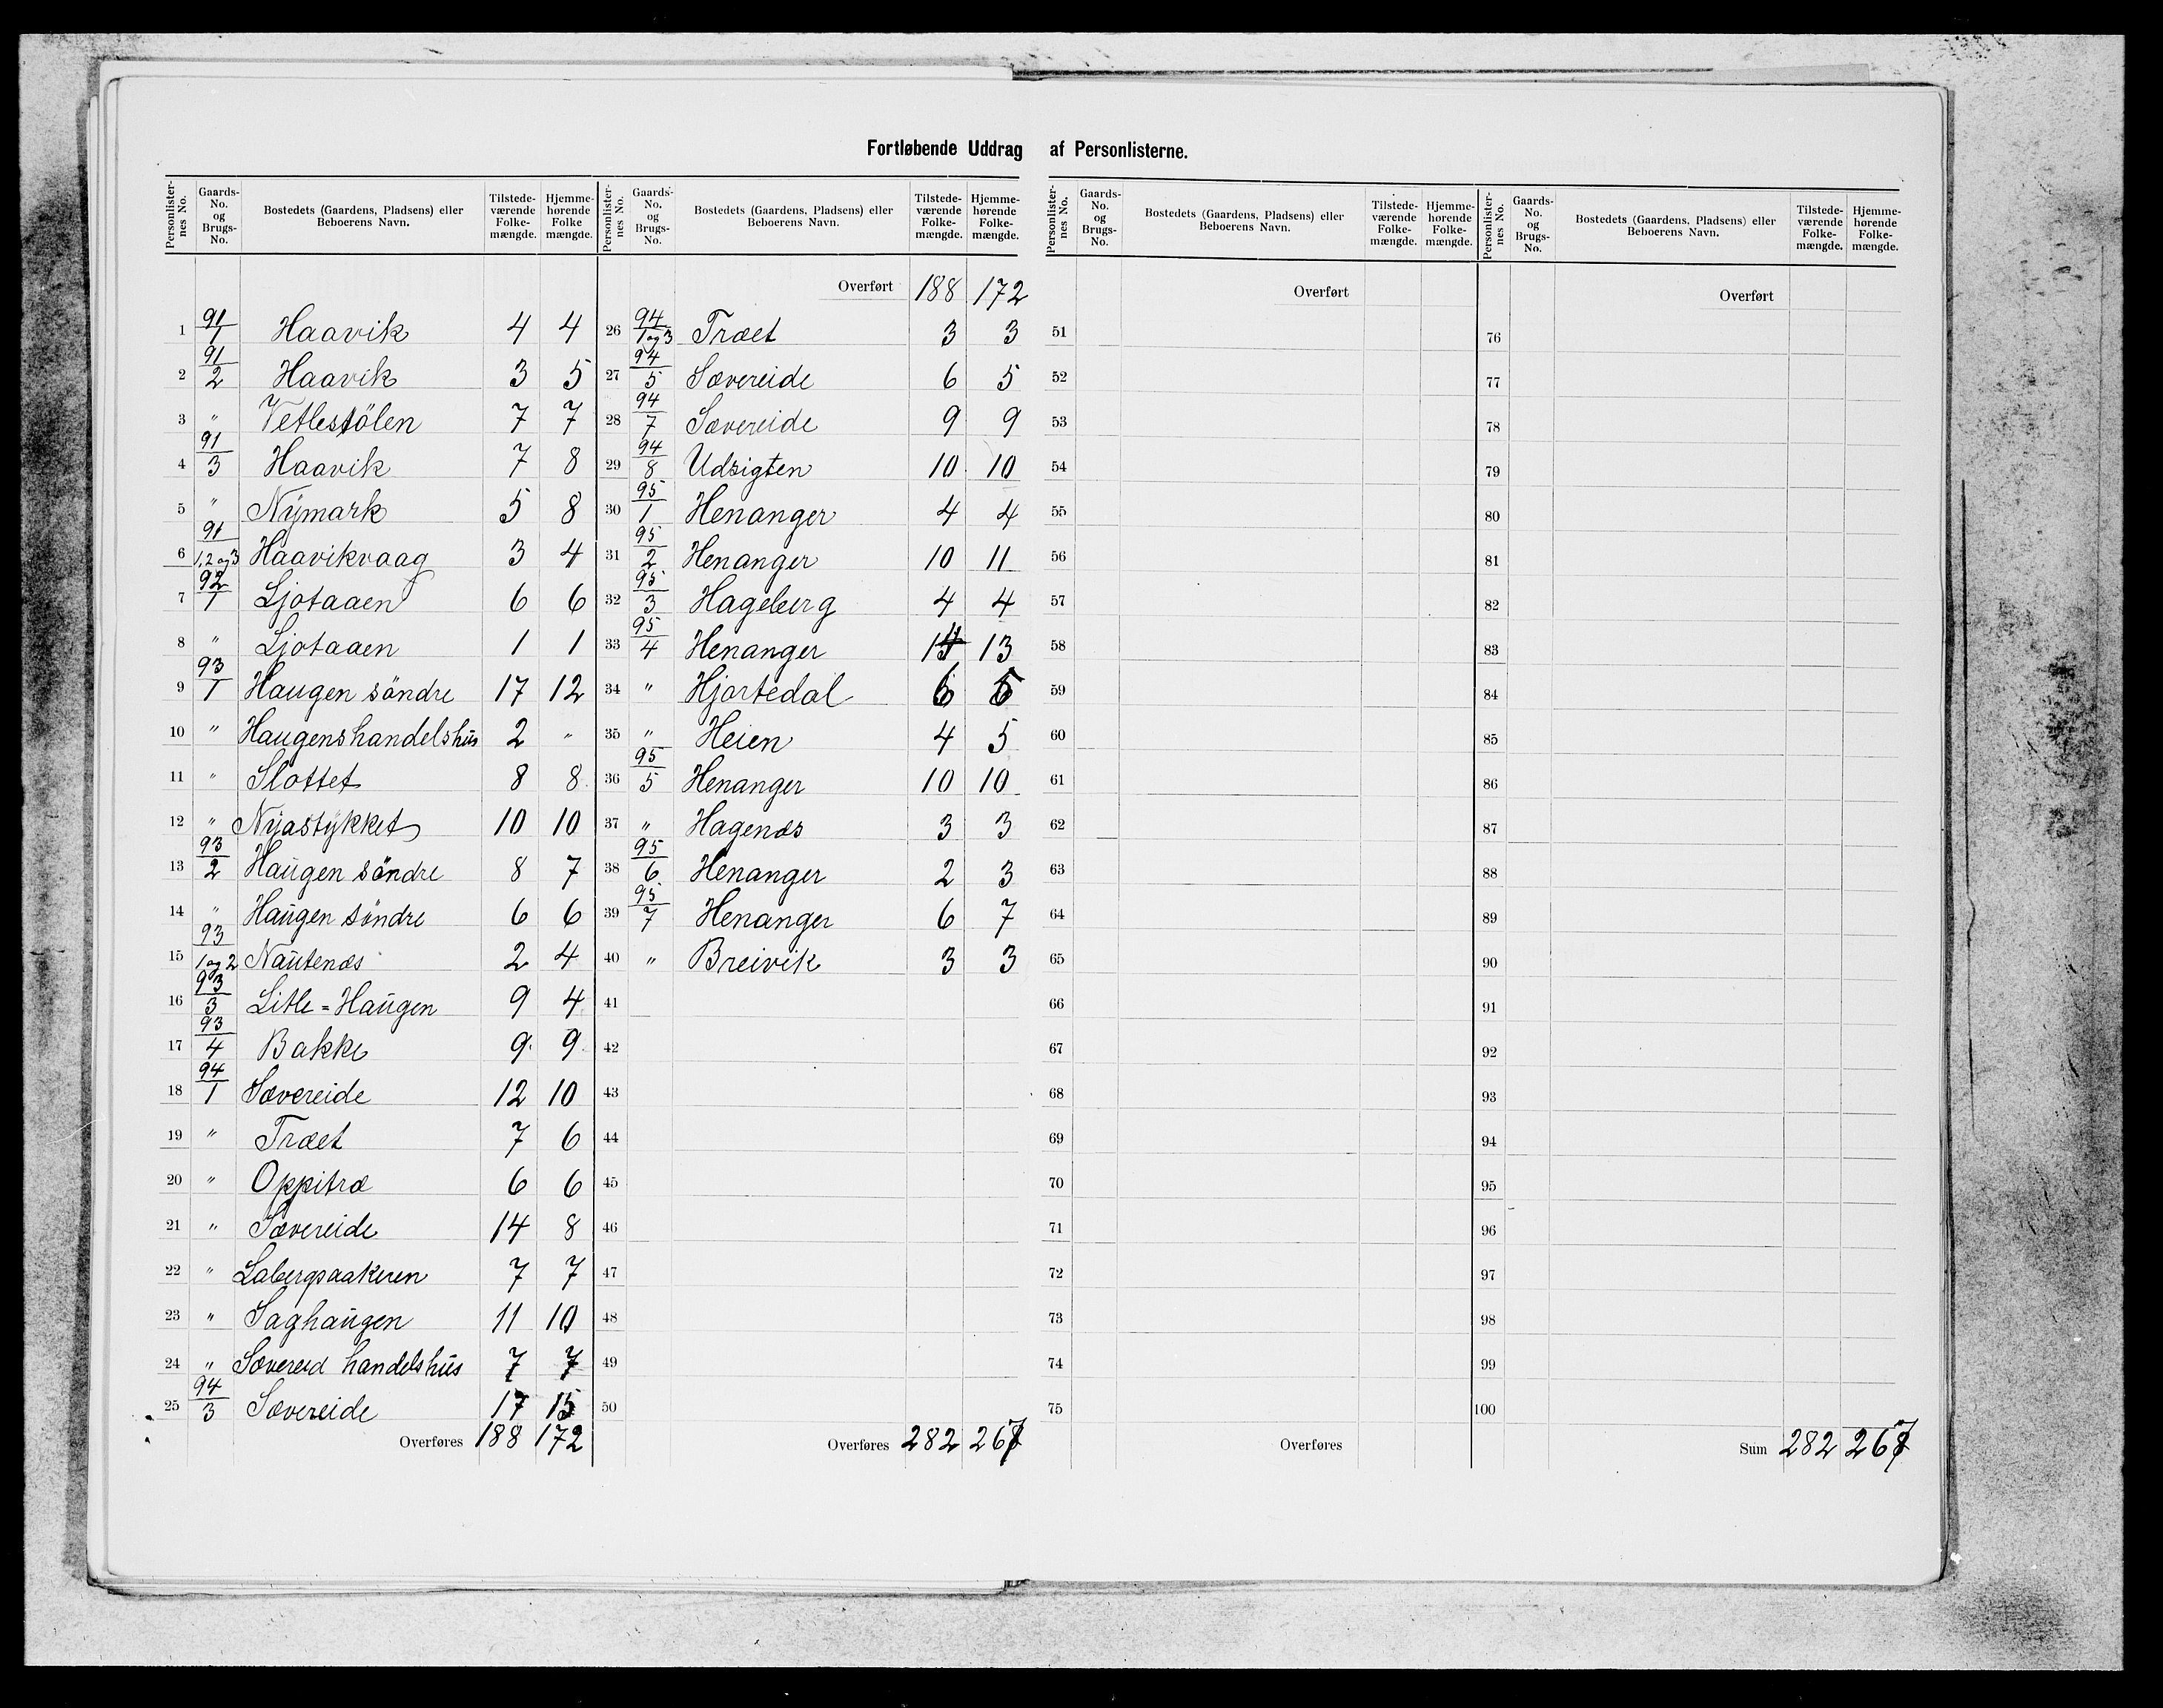 Fortløbende Uddrag af Personlisterne.
Personlisternes No. | Gaards-No. og Brugs-No. | Bostedets (Gaardens, Pladsens) eller Beboerens Navn. | Tilstedeværende Folkemængde. | Hjemmehørende Folke mængde.
1 | 91/1 | Haavik | 4 | 4
2 | 91/2 | Haavik | 3 | 5
3 | " | Vetlestölen | 7 | 7
4 | 91/3 | Haavik | 7 | 8
5 | " | Nymark | 5 | 8
6 | 91/1,2 og 3 | Haavikvaag | 3 | 4
7 | 92/1 | Ljotaaen | 6 | 6
8 | " | Ljotaaen | 1 | 1
9 | 93/1 | Haugen söndre | 17 | 12
10 | " | Haugens handelshus | 2 | "
11 | " | Slottet | 8 | 8
12 | " | Nyastykket | 10 | 10
13 | 93/2 | Haugen söndre | 8 | 7
14 | " | Haugen söndre | 6 | 6
15 | 93/1 og 2 | Nautenæs | 2 | 4
16 | 93/3 | Litle=Haugen | 9 | 4
17 | 93/4 | Bakke | 9 | 9
18 | 94/1 | Sævereide | 12 | 10
19 | " | Træet | 7 | 6
20 | " | Oppitræ | 6 | 6
21 | " | Sævereide | 14 | 8
22 | " | Labergsaakeren | 7 | 7
23 | " | Saghaugen | 11 | 10
24 | " | Sævereid handelshus | 7 | 7
25 | 94/3 | Sævereide | 17 | 15
Overføres 188 172
Personlisternes No. | Gaards-No. og Brugs-No. | Bostedets (Gaardens, Pladsens) eller Beboerens Navn. | Tilstedeværende Folkemængde. | Hjemmehørende Folkemængde.
Overført 188 172
26 | 94/1 og 3 | Træet | 3 | 3
27 | 94/5 | Sævereide | 6 | 5
28 | 94/7 | Sævereide | 9 | 9
29 | 94/8 | Udsigten | 10 | 10
30 | 95/1 | Henanger | 4 | 4
31 | 95/2 | Henanger | 10 | 11
32 | 95/3 | Hageberg | 4 | 4
33 | 95/4 | Henanger | 14 | 13
34 | " | Hjortedal | 6 | 5
35 | " | Heien | 4 | 5
36 | 95/5 | Henanger | 10 | 10
37 | " | Hagenæs | 3 | 3
38 | 95/6 | Henanger | 2 | 3
39 | 95/7 | Henanger | 6 | 7
40 | " | Breivik | 3 | 3
41
42
43
44
45
46
47
48
49
50
Overføres 282 267
Personlisternes No. | Gaards-No. og Brugs-No. | Bostedets (Gaardens, Pladsens) eller Beboerens Navn. | Tilstedeværende Folkemængde. | Hjemmehørende Folkemængde.
Overført
51
52
53
54
55
56
57
58
59
60
61
62
63
64
65
66
67
68
69
70
71
72
73
74
75
Overføres
Personlisternes No. | Gaards-No. og Brugs-No. | Bostedets (Gaardens, Pladsens) eller Beboerens Navn. | Tilstedeværende Folkemængde. | Hjemmehørende Folkemængde.
Overført
76
77
78
79
80
81
82
83
84
85
86
87
88
89
90
91
92
93
94
95
96
97
98
99
100
Sum 282 267